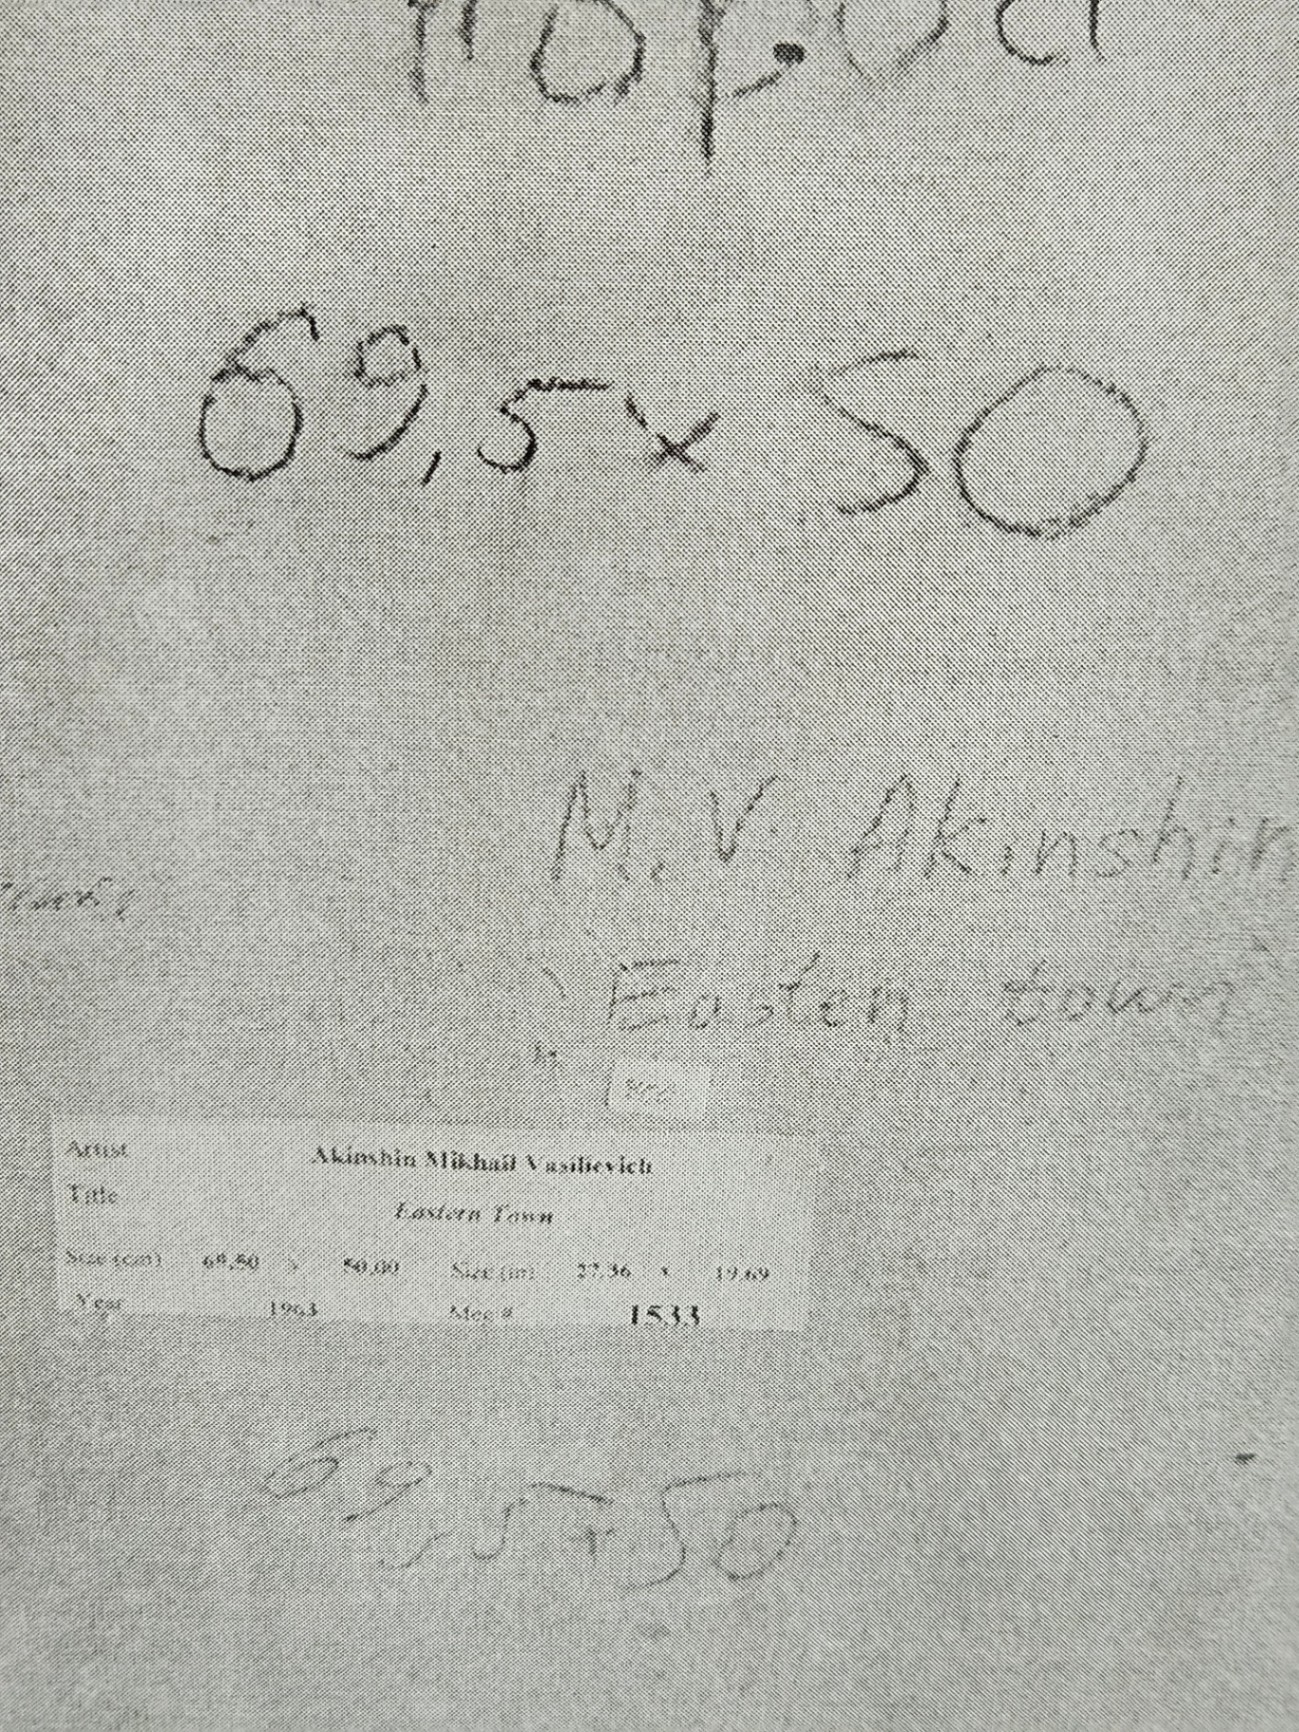 69,5 x 50
M. V. Akinshin
"Eastern town"
Artist Akinshin Mikhail Vasilievich
Title Eastern Town
Size (cm) 69.50 x 50.00 Size (in) 27.36 x 19.69
Year 1963 Mec # 1533
69,5 x 50